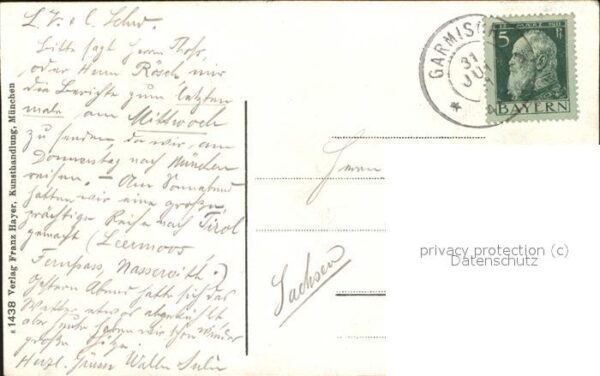 L. V. e l. Schw.
Bitte sagt Herrn Thofs,
oder Herrn Rösch mir
die Berichte zum letzten
male am Mittwoch
zu senden, da wir am
Donnerstag nach München
reisen. — Am Sonnabend
hatten wir eine große,
prächtige Reise nach Tirol
gemacht (Leermoos
Fernpass, Nassereith.)
Gestern Abend hatte sich das
Wetter etwas abgekühlt
aber heute haben wir schon wieder
große Hitze.
Herzl. Grüsse
№ 1438 Verlag Franz Hayer, Kunsthandlung, München
GARMISCH
31
JUL
5
BAYERN
Herrn
Sachsen
privacy protection (c)
Datenschutz